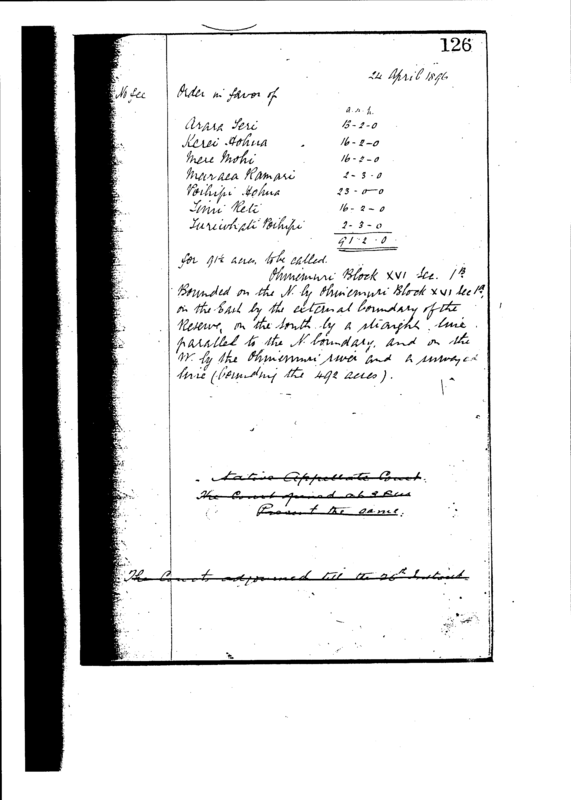 126
24 April 1896
No fee Order in favor of
a. r. p.
Arara Teri 13-2-0
Kerei Hohua 16-2-0
Mere Mohi 16-2-0
Maraea Kamari 2-3-0
Poihipi Hohua 23-0-0
Timi Reti 16-2-0
Turiwhati Poihipi 2-3-0
91-2-0
for 91½ acres to be called
Ohinemuri Block XVI Sec. 1B
Bounded on the N. by Ohinemuri Block XVI Sec 1A,
on the East by the external boundary of the
Reserve, on the South by a straight line
parallel to the N. boundary, and on the
W. by the Ohinemuri river and a surveyed
line (bounding the 492 acres).
Native Appellate Court.
The Court opened at
Present the same.
The Court adjourned till the 26th Instant